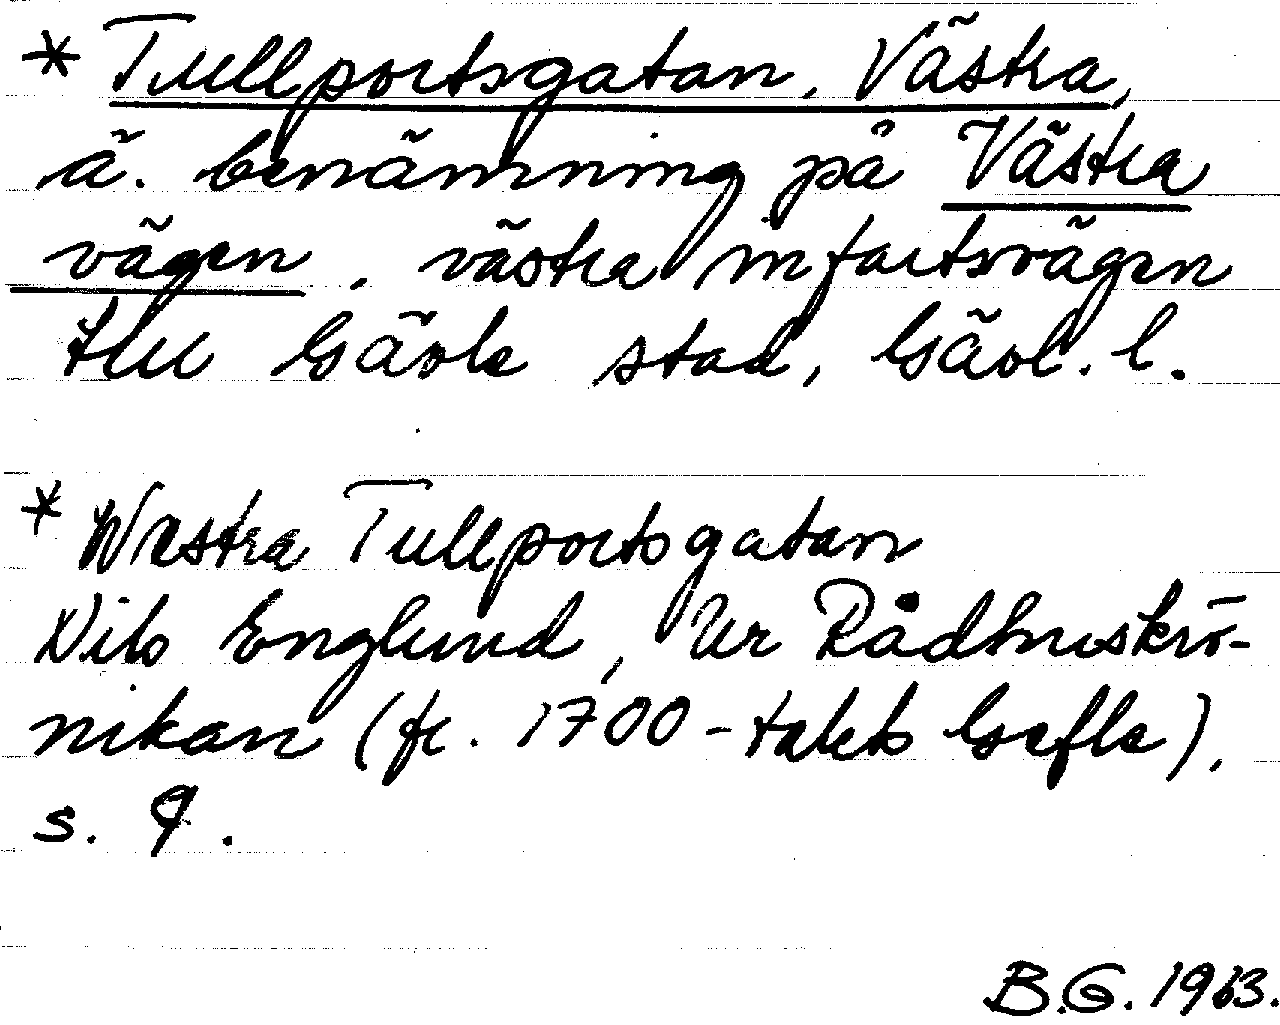 * Tullportsgatan, Västra,
ä. benämning på Västra
vägen, västra infartsvägen
till Gävle stad, Gävl. l.
* Wæstra Tullportsgatan
Nils Englund, Ur Rådhuskrö-
nikan (fr. 1700-talets Gefle),
s. 9.
B.G. 1963.